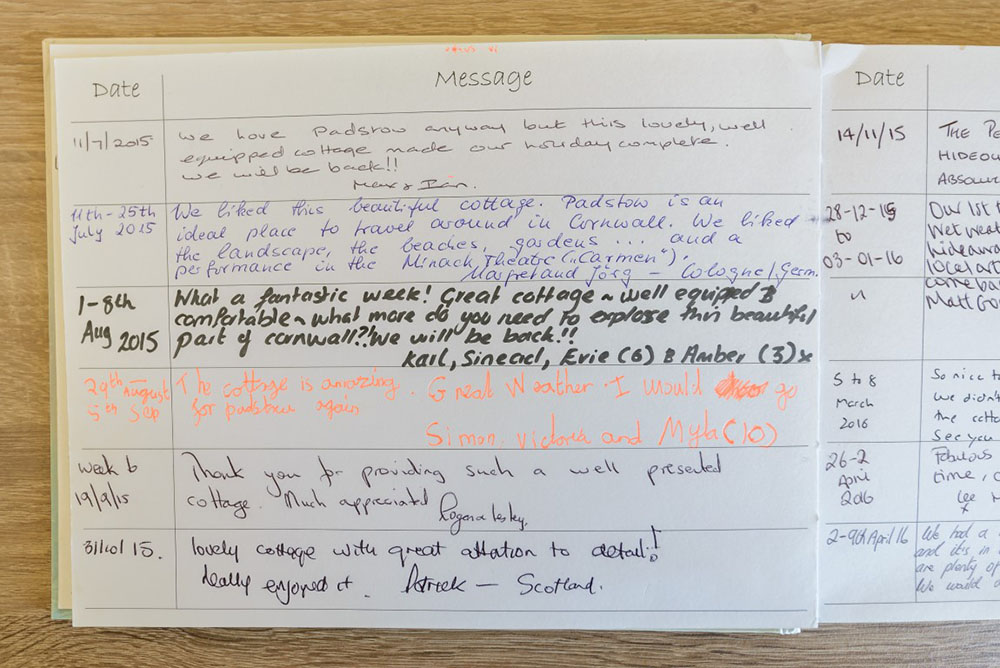 Date Message
11/7/2015 We love Padstow anyway but this lovely, well
equipped cottage made our holiday complete.
we will be back!!
Ian.
11th-25th We liked this beautiful cottage. Padstow is an
July 2015 ideal place to travel around in Cornwall. We liked
the landscape, the beaches, gardens ... and a
performance in the Minack Theatre („Carmen").
Margret and Jörg - Cologne/Germ.
1-8th What a fantastic week! Great cottage ~ well equipped &
Aug 2015 comfortable ~ what more do you need to explore this beautiful
part of cornwall?? We will be back!!
Karl, Sinead, Evie (6) & Amber (3) x
29th August The cottage is amazing. Great Weather. I would go
5th Sep for padstow again
Simon, Victoria and Myla (10)
week to Thank you for providing such a well presented
19/9/15 cottage. Much appreciated
31/10/15. lovely cottage with great attation to detail!
Really enjoyed it. - Scotland.
Date
14/11/15 THE
HIDEOU
ABSOLU
28-12-15 Our 1st
to Wet weat
03-01-16 hideawa
local art
come ba
" Matt
5 to 8 So nice t
March we didn't
2016 the cotta
See you
26-2 Fabulous
April time,
2016 Lee
x
2-9th April 16 We had a
and it's in
are plenty of
We would